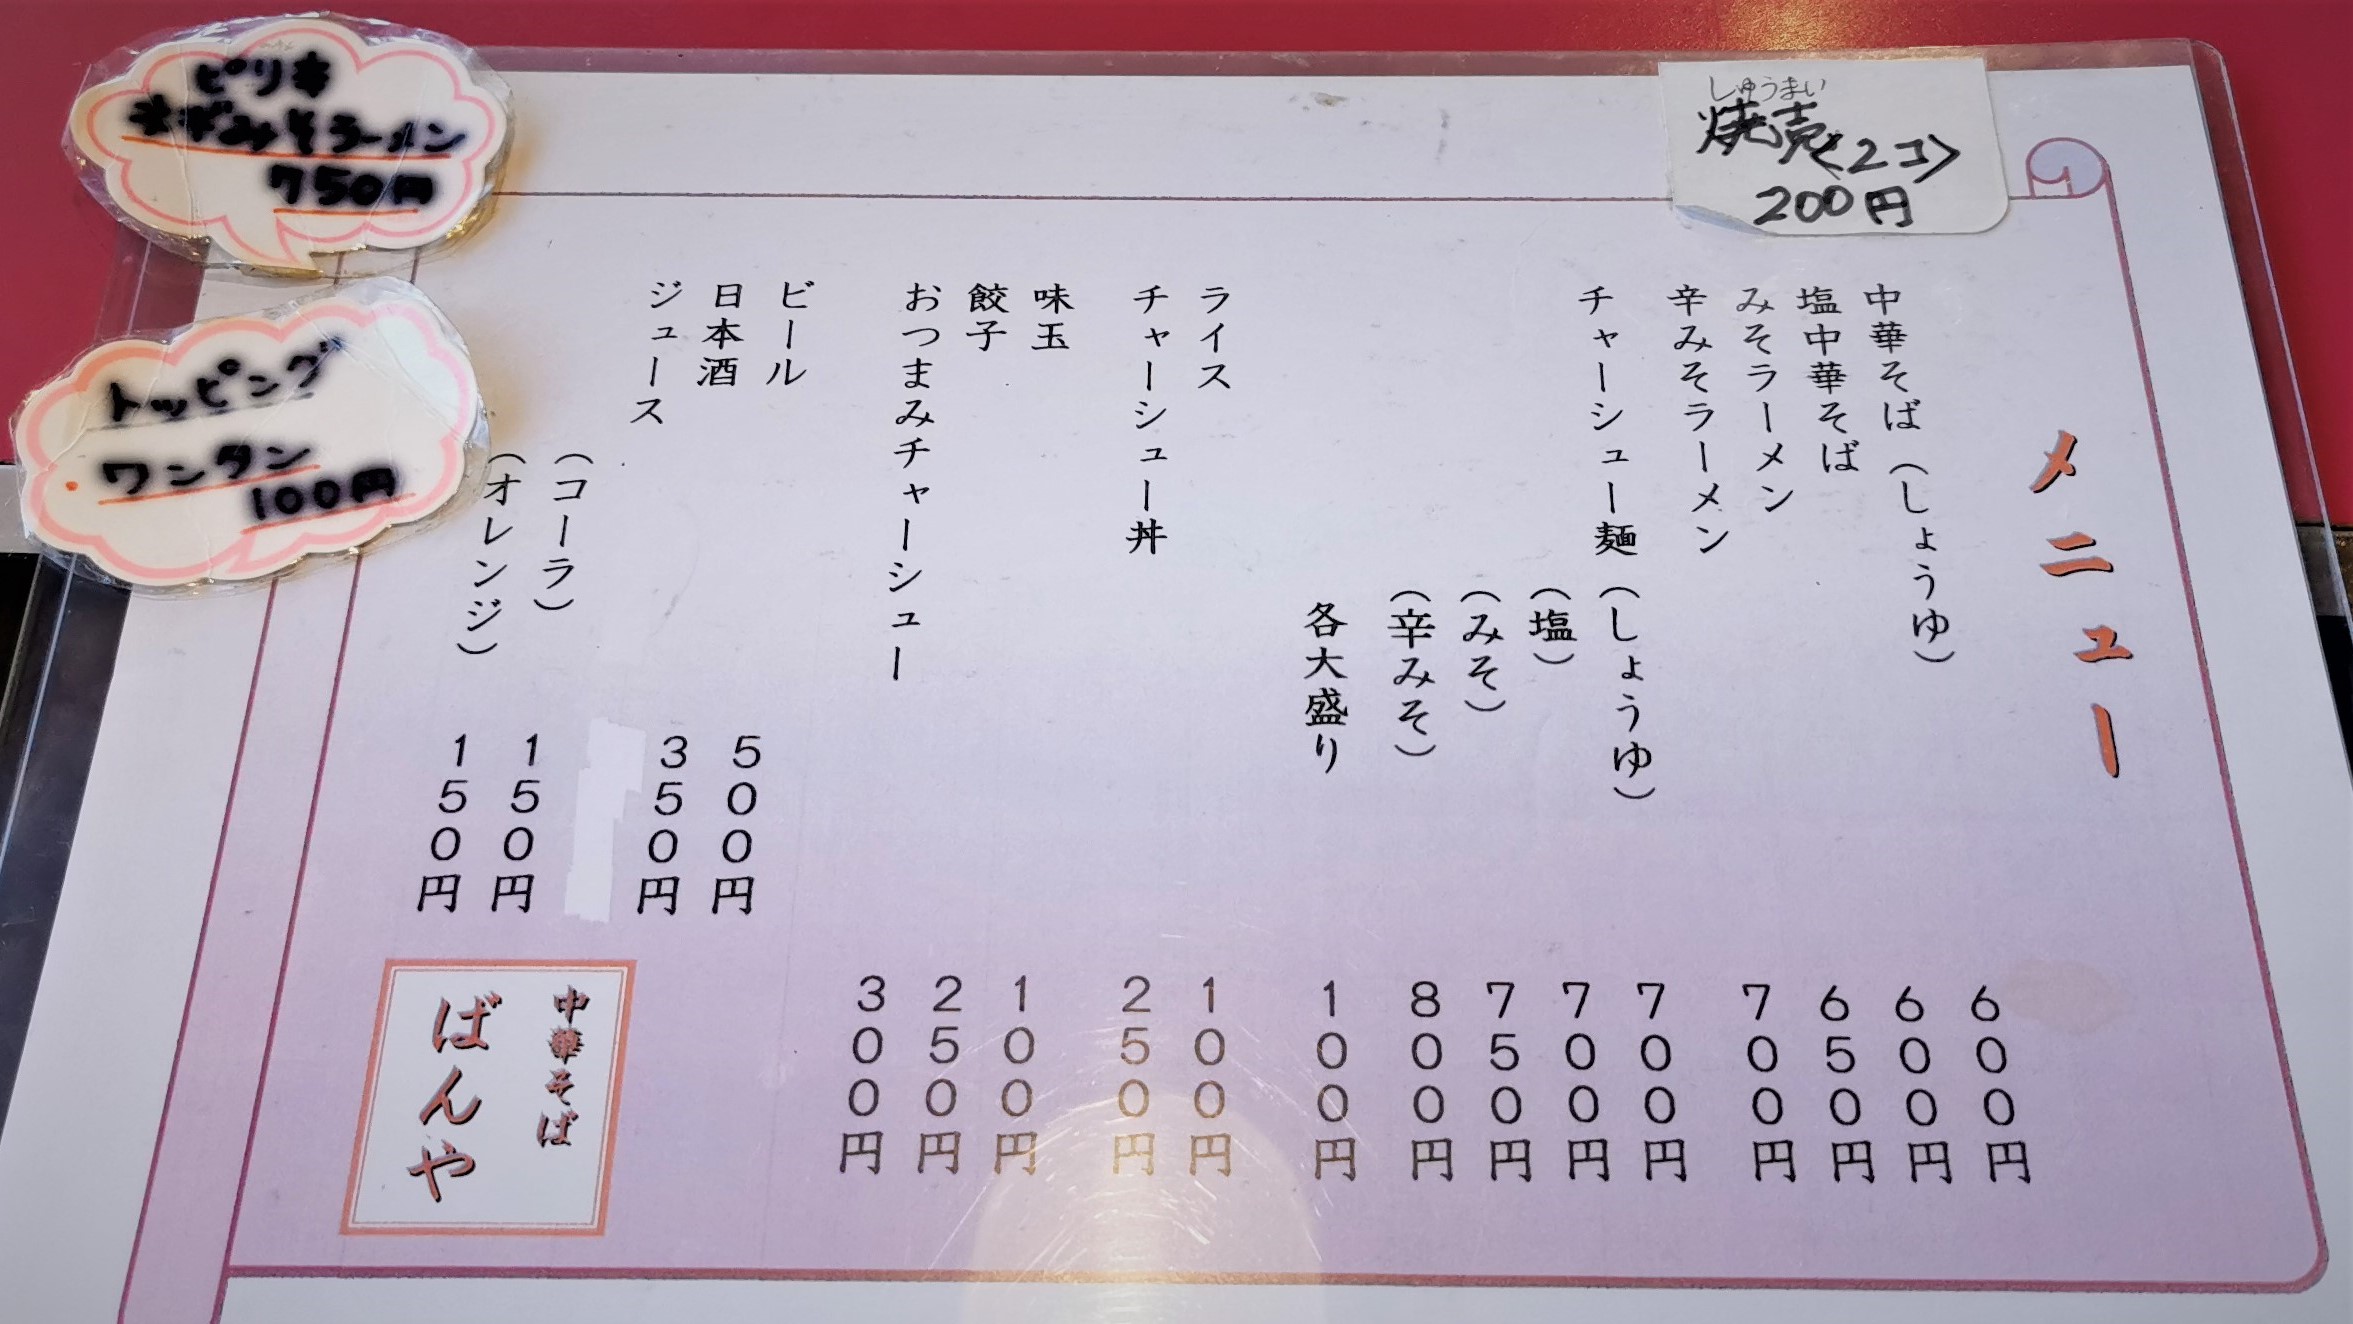 メニュー
中華そば（しょうゆ） 600円
塩中華そば 600円
みそラーメン 650円
辛みそラーメン 700円
チャーシュー麺（しょうゆ） 700円
（塩） 700円
（みそ） 750円
（辛みそ） 800円
各大盛り 100円
ライス 100円
チャーシュー丼 250円
味玉 100円
餃子 250円
おつまみチャーシュー 300円
ビール 500円
日本酒 350円
ジュース
（コーラ） 150円
（オレンジ） 150円
中華そば
ばんや
しゅうまい
焼売<2コ>
200円
ピリ辛
ネギみそラーメン
750円
トッピング
ワンタン
100円